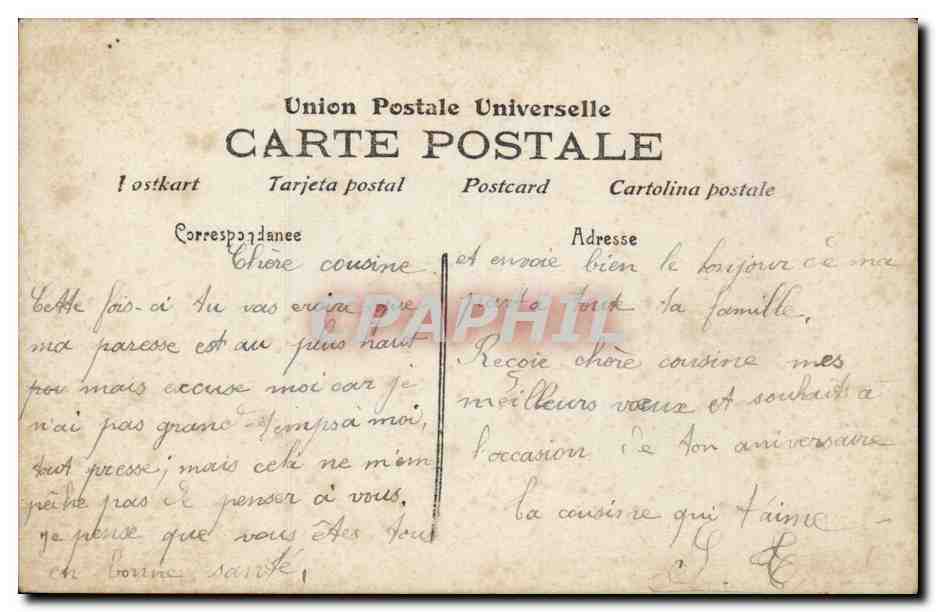 Union Postale Universelle
CARTE POSTALE
Postkart Tarjeta postal Postcard Cartolina postale
Correspondance
Chère cousine
Cette fois-ci tu vas croire que
ma paresse est au plus haut
mais excuse moi car je
n'ai pas grand temps à moi,
tout presse; mais cela ne m'em
pêche pas de penser à vous.
je pense que vous êtes tou
en bonne santé,
Adresse
et envoie bien le bonjour de ma
part a toute ta famille.
Reçoie chère cousine mes
meilleurs vœux et souhaits à
l'occasion de ton aniversaire
Ta cousine qui t'aime
CPAPHIL